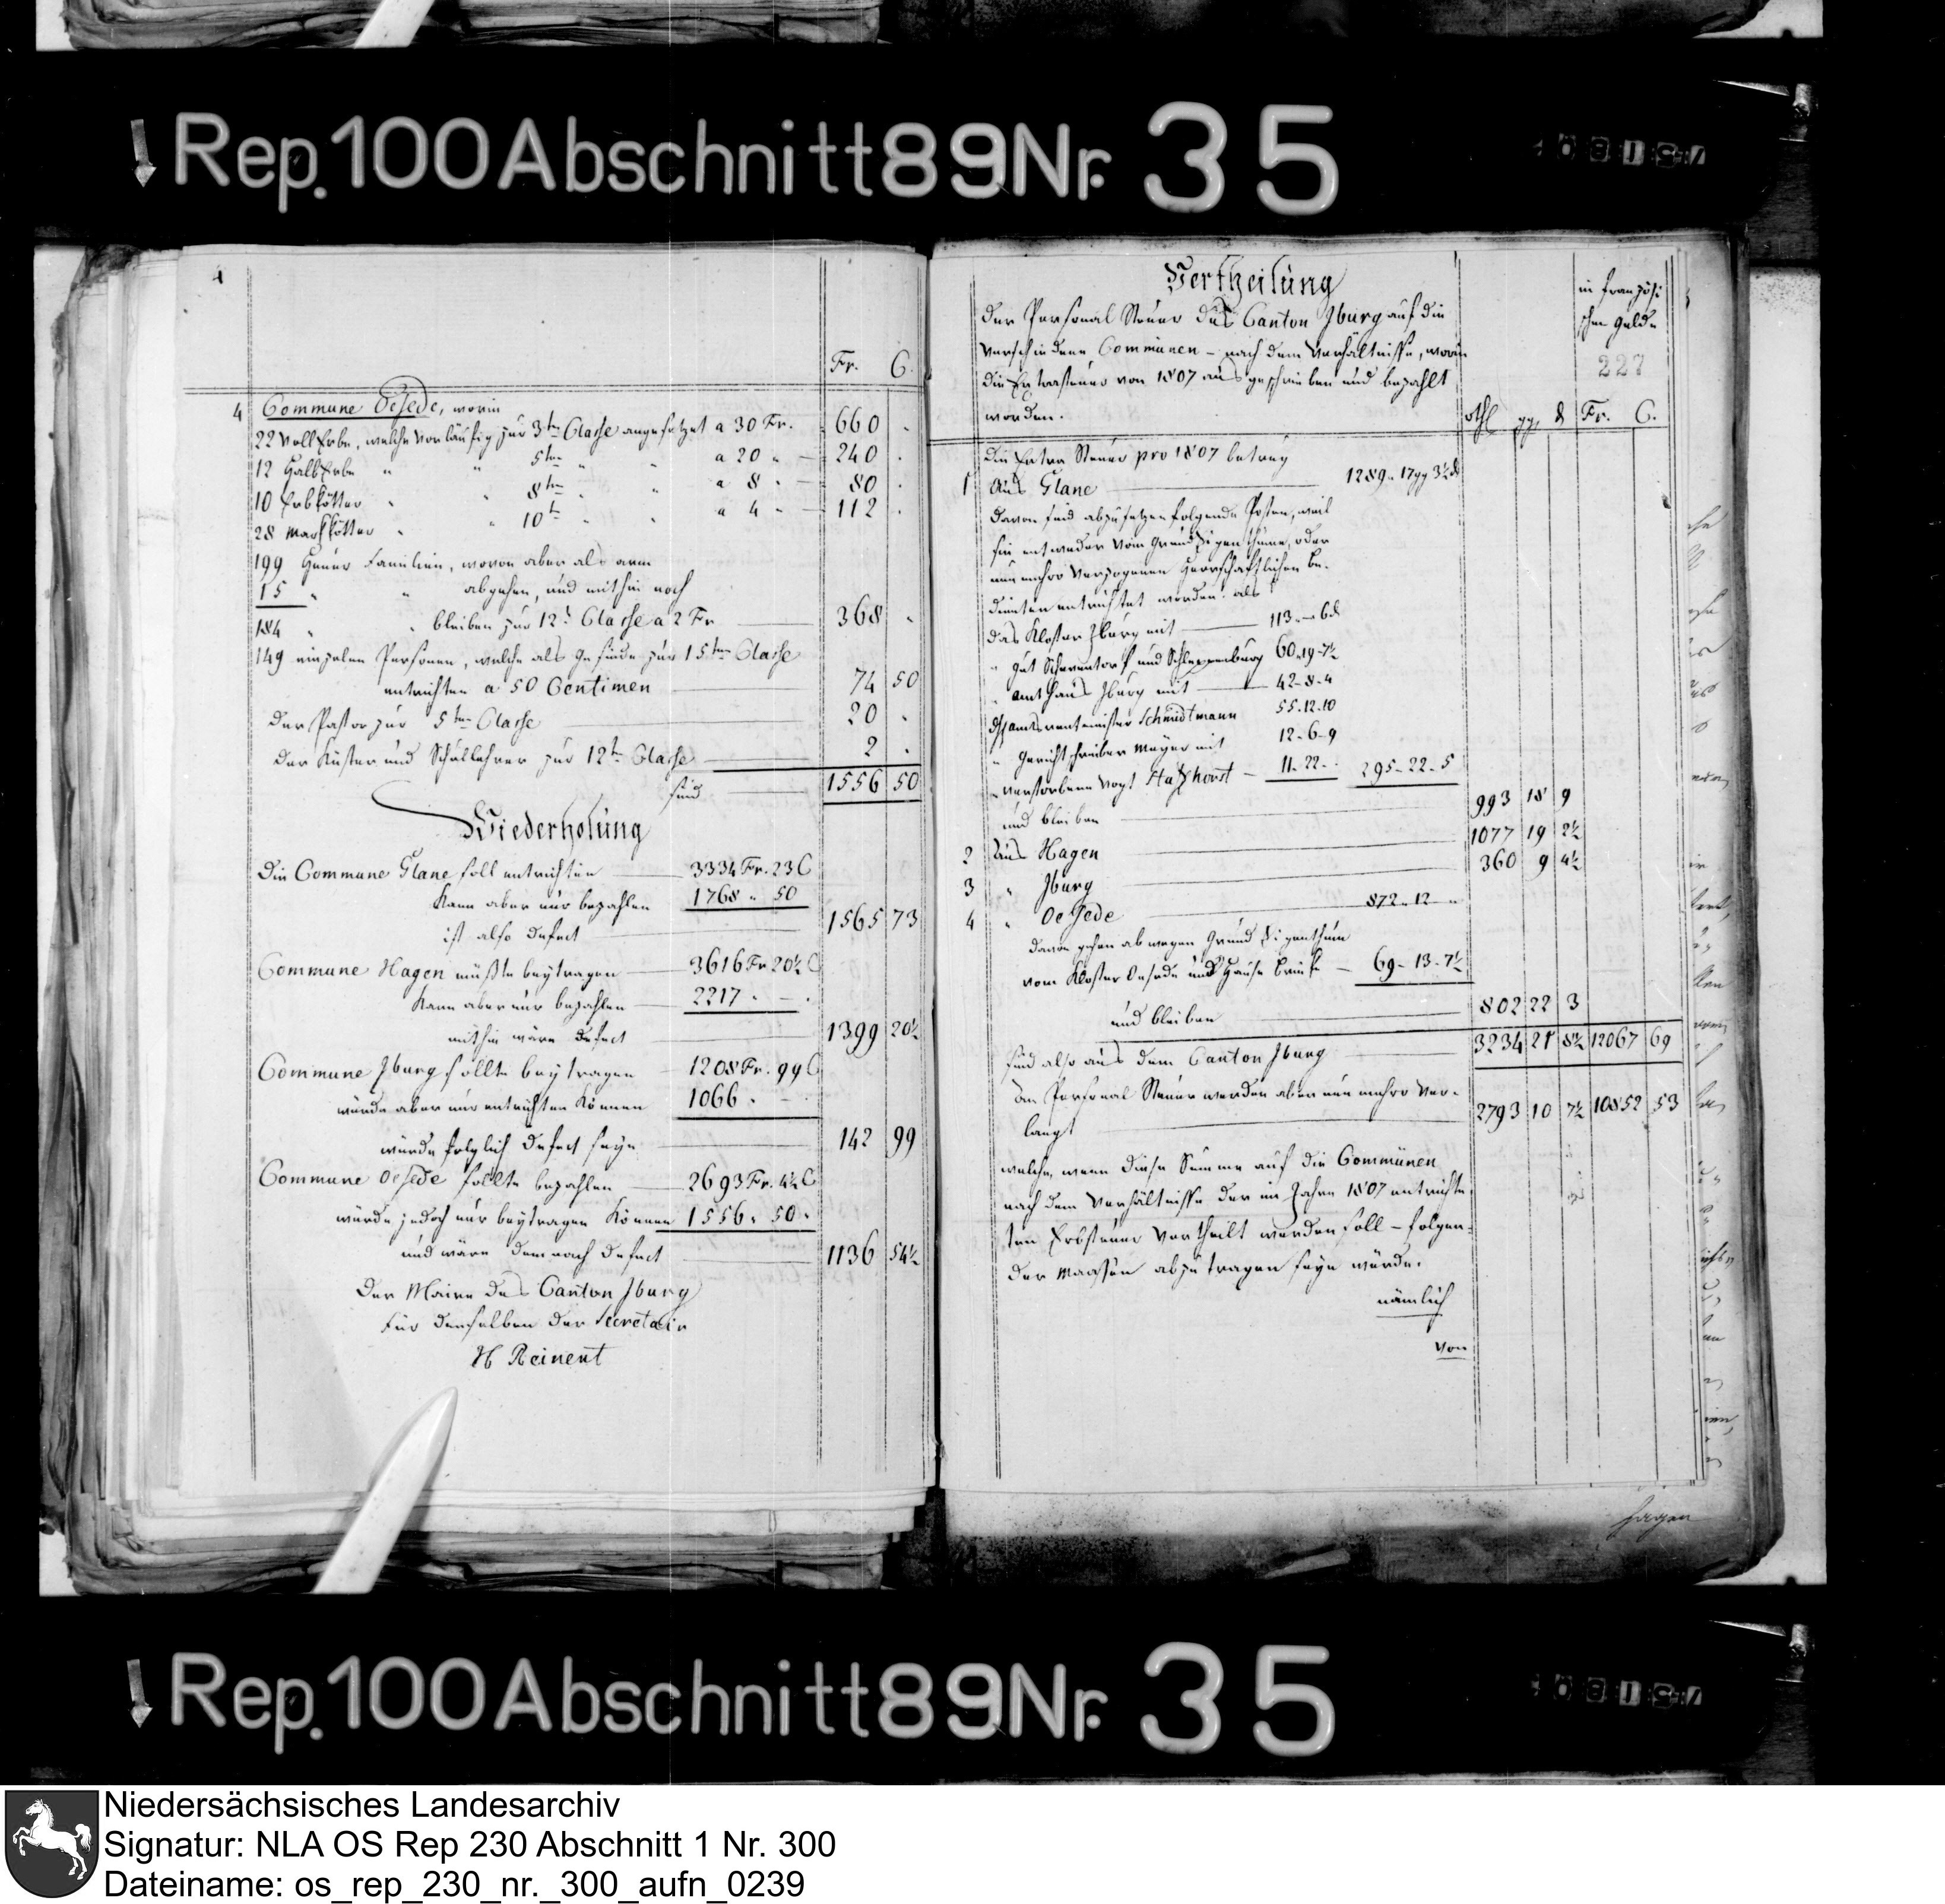 Rep. 100 Abschnitt 89 Nr. 35
4
Fr. C.
4 Commune Oesede, worin
22 VollErbe, welche vorläufig zur 3ten Classe angesetzet a 30 Fr. 660 .
12 HalbErbe " " 5ten " " a 20 " — 240 .
10 Erbkötter " " 8ten " " a 8 " — 80 .
28 Markkötter " " 10t " " a 4 " — 112 .
199 Heuer Familien, wovon aber als arm
15 " " abgehen, und mithin noch
184 " " bleiben zur 12t Classe a 2 Fr 368 .
149 einzelne Personen, welche als Gesinde zur 15ten Classe
entrichten a 50 Centimen 74 50
der Pastor zur 5ten Classe 20 .
der Küster und Schullehrer zur 12t Classe 2 .
sind 1556 50
Wiederholung
Die Commune Glane soll entrichten 3334 Fr. 23 C
Kann aber nur bezahlen 1768 " 50
ist also defect 1565 73
Commune Hagen müßte beytragen 3616 Fr 20½ C
Kann aber nur bezahlen 2217 . — .
mithin wäre defect 1399 20½
Commune Iburg sollte beytragen 1208 Fr. 99 C
würde aber nur entrichten können 1066 . — .
würde folglich defect seyn 142 99
Commune Oesede sollte bezahlen 2693 Fr. 4½ C
würde jedoch nur beytragen können 1556 " 50 "
und wäre demnach defect 1136 54½
Der Maire des Canton Iburg
für denselben der Secretair
H Reinert
Vertheilung
der Personal Steuer des Canton Iburg auf die
verschiedene Communen – nach dem Verhältnisse, worin
die Extrasteuer von 1807 ausgeschrieben und bezahlt
worden.
in französi
schen Gelde
227
rthl gg d Fr. C.
Die Extra Steuer pro 1807 betrug
1 Aus Glane 1289 " 17 gg 3½ d
davon sind abzusetzen folgende Posten, weil
sie entweder vom GrundEigenthume, oder
nunmehro verzogenen Herrschaftlichen Be-
dienten entrichtet worden: als
das Kloster Iburg mit 113 " — 6 d
" Gut Scheventorf und Schleppenburg 60 " 19 - 7½
" Amthaus Iburg mit 42 - 8 - 4
Amtsrentmeister Schmidtmann 55 - 12 - 10
" Gerichtschreiber Meyer mit 12 - 6 - 9
" verstorbene Vogt Statzhorst — 11 - 22 - . 295 - 22 - 5
und bleiben 993 18 9
2 Aus Hagen 1077 19 2½
3 " Iburg 360 9 4½
4 " Oesede 872 - 12 "
davon gehen ab wegen Grund Eigenthum
vom Kloster Oesede und Hause Brinke — 69 - 13 - 7½
und bleiben 802 22 3
sind also aus dem Canton Iburg 3234 21 8½ 12067 69
An Personal Steuer werden aber nunmehro ver-
langt 2793 10 7½ 10852 53
welche, wenn diese Summe auf die Communen
nach dem Verhältnisse der im Jahre 1807 entrichte-
ten Erbsteuer vertheilt werden soll – folgen-
der Maaßen abzutragen seyn würde.
nämlich
von
Rep. 100 Abschnitt 89 Nr. 35
Niedersächsisches Landesarchiv
Signatur: NLA OS Rep 230 Abschnitt 1 Nr. 300
Dateiname: os_rep_230_nr._300_aufn_0239